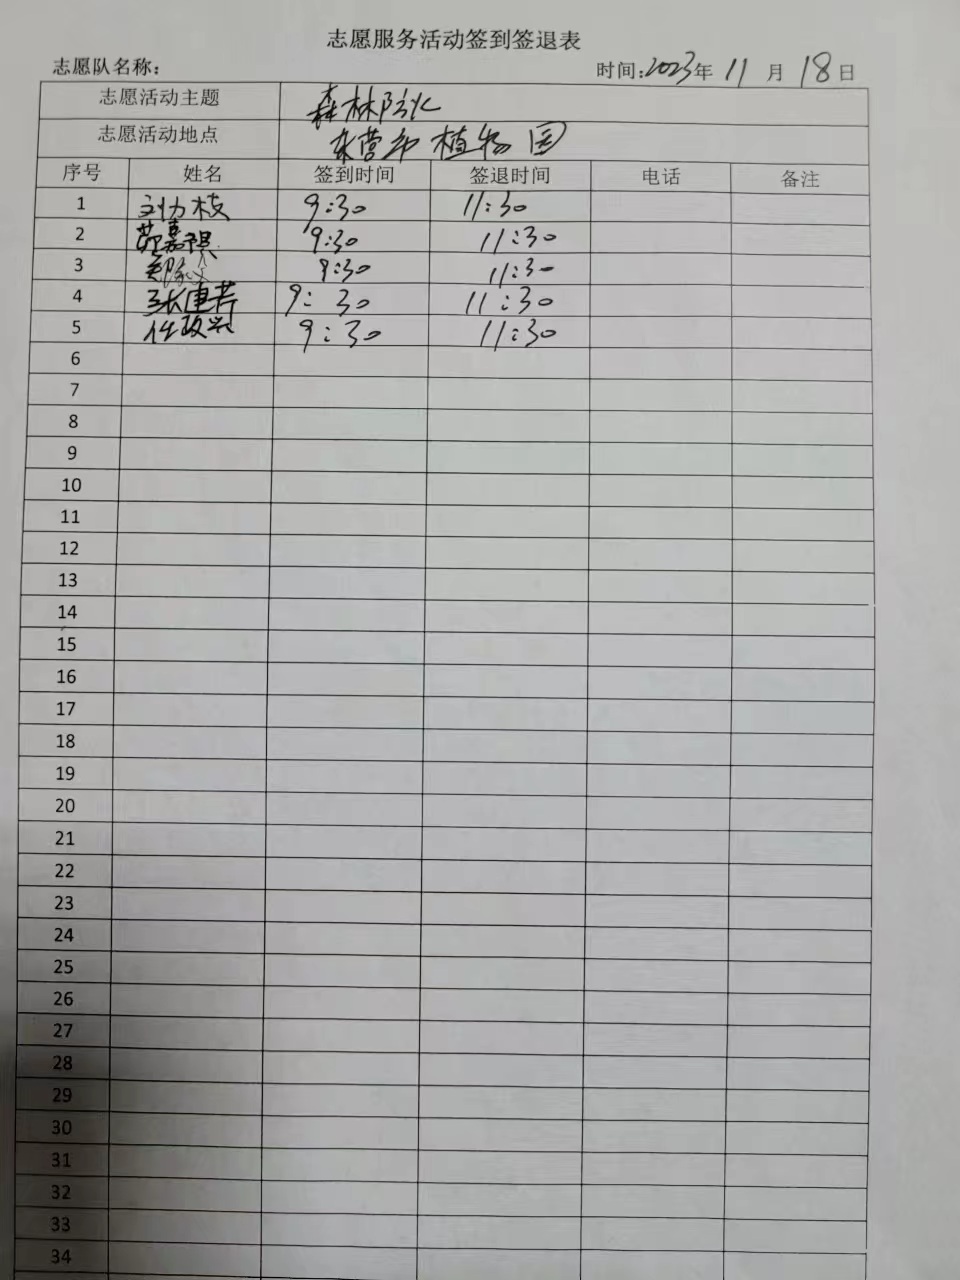 志愿服务活动签到签退表
志愿队名称： 时间:2023年 11 月 18 日
志愿活动主题 森林防火
志愿活动地点 东营市植物园
序号 姓名 签到时间 签退时间 电话 备注
1 枝 9:30 11:30
2 嘉 9:30 11:30
3 9:30 11:30
4 张建芳 9:30 11:30
5 任政 9:30 11:30
6
7
8
9
10
11
12
13
14
15
16
17
18
19
20
21
22
23
24
25
26
27
28
29
30
31
32
33
34